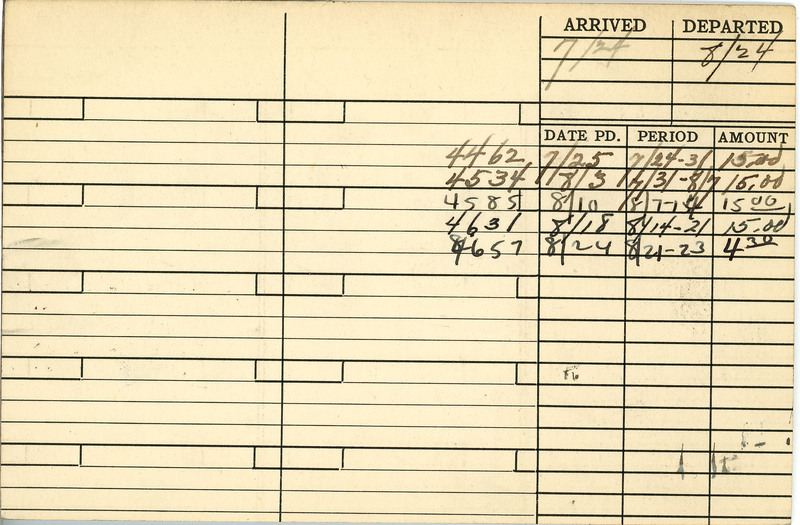 ARRIVED DEPARTED
7/24 8/24
DATE PD. PERIOD AMOUNT
4462 7/25 7/24-31 15.00
4534 8/3 7/31-8/7 15.00
4585 8/10 8/7-14 15 00
4631 8/18 8/14-21 15.00
4657 8/24 8/21-23 4 30